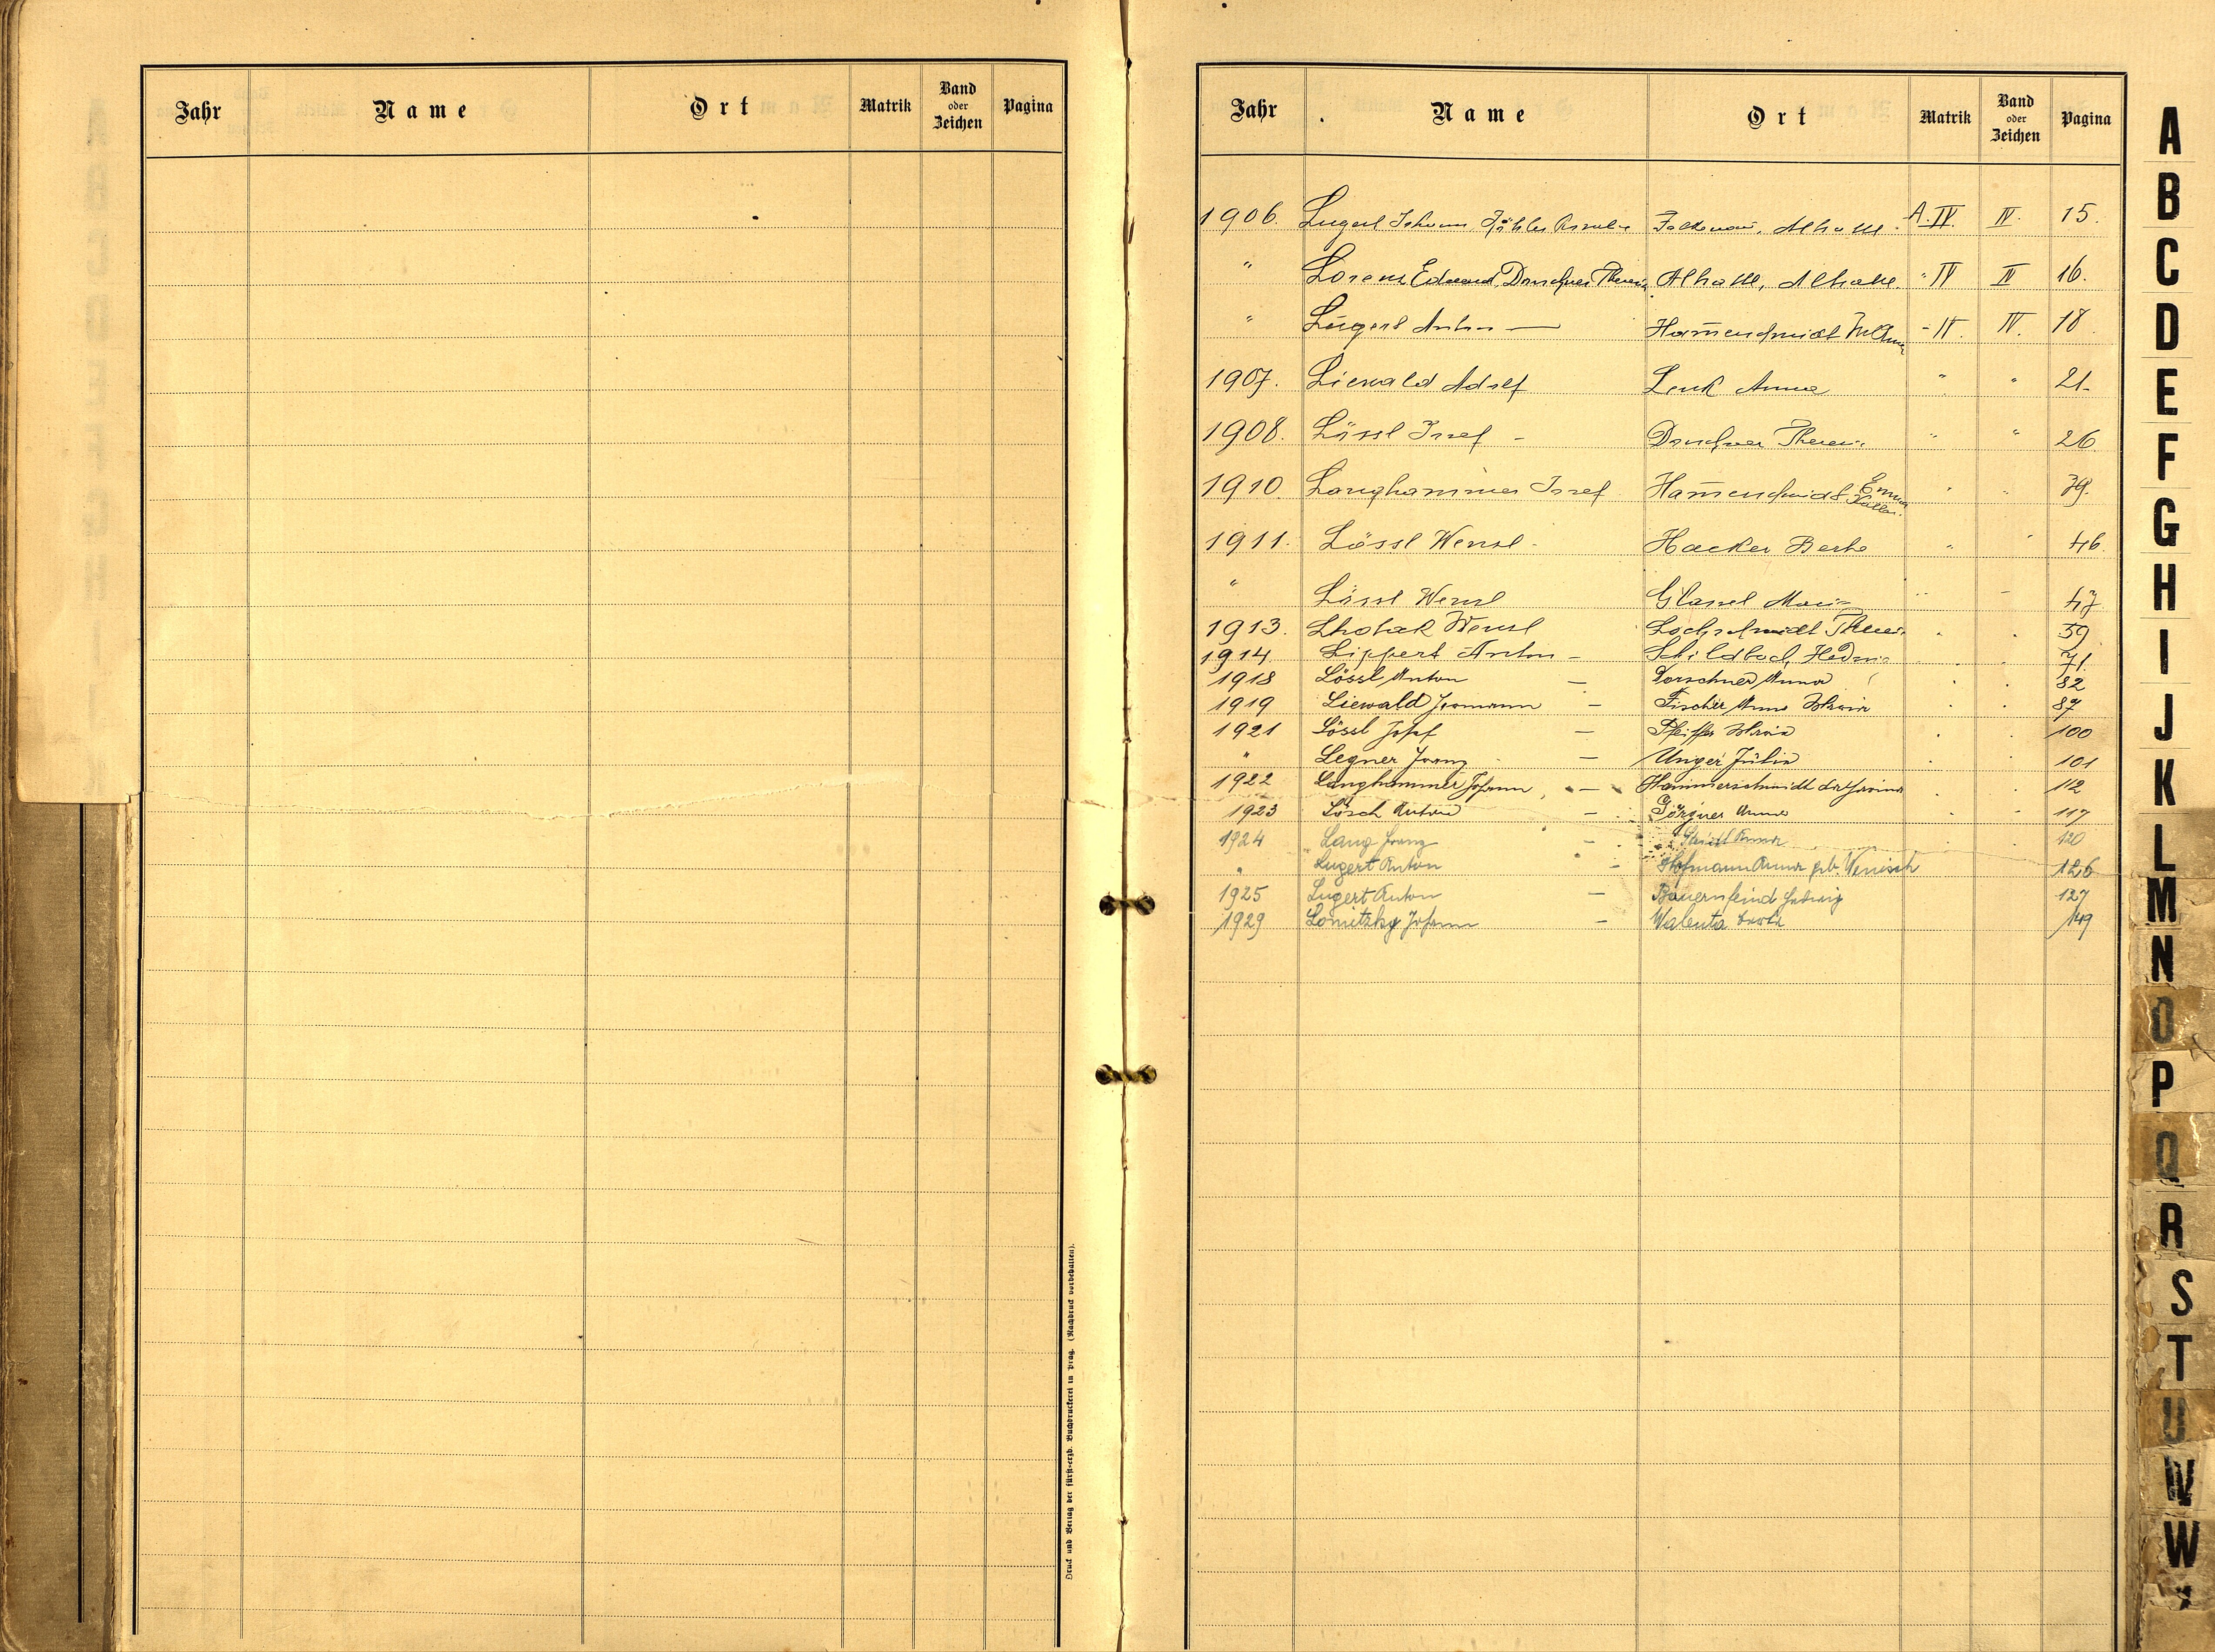 Jahr Name Ort Matrik Band oder Zeichen Pagina
Druck und Verlag der fürst-erzb. Buchdruckerei in Prag. (Nachdruck vorbehalten).
Jahr Name Ort Matrik Band oder Zeichen Pagina
1906. Lugert Johann, Falkenau, Altsattl. A. IV. IV. 15.
" Lorenz Eduard, Dorschner Theresia Altsattl, Altsattl. " IV IV 16.
" Lugert Anton — Ham̅erschmidt - IV. IV. 18
1907. Liewald Adolf Lenk Anna " " 21.
1908. Lössl Josef - Dorschner Theresia " " 26
1910. Langhammer Josef Ham̅erschmidt Emma " " 39.
1911. Lössl Wenzl - Hacker Berta " " 46.
" Lössl Wenzl Glassel Marie " " 47
1913. Lhotak Wenzl Lochschmidt Theres. 59
1914. Lippert Anton - Schildbach Hedwig 71.
1918 Lössl Anton — Dorschner Anna 82
1919 Liewald Hermann — Fischer Anna Maria 87
1921 Lössl Josef — Pfeiffer Maria 100
" Legner Franz — Unger Julia 101
1922 Langhammer Johann — Hammerschmidt Katharina 112
1923 Lösch Anton — Görgner Anna 117
1924 Lang Franz - Anna 120
" Lugert Anton - Hofmann Anna geb. Wenisch 126
1925 Lugert Anton — Bauernfeind Hedwig 127
1929 Lomitzky Johann — Walenta Berta 149
A
B
C
D
E
F
G
H
I
J
K
L
M
N
O
P
Q
R
S
T
U
V
W